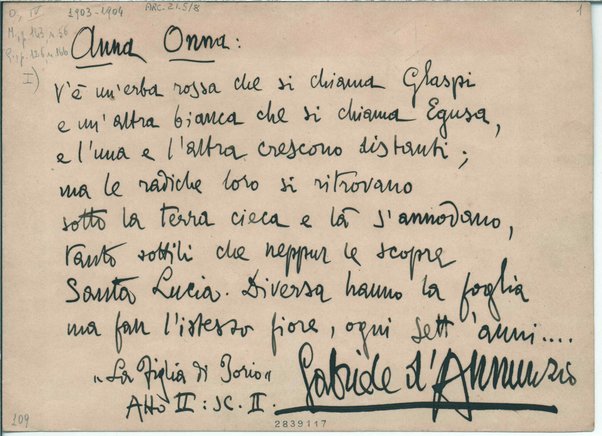 O, IV 1903-1904 ARC. 21.5/8 1
I)
Anna Onna:
V'è un'erba rossa che si chiama Glaspi
e un'altra bianca che si chiama Egusa,
e l'una e l'altra crescono distanti;
ma le radiche loro si ritrovano
sotto la terra cieca e là s'annodano,
tanto sottili che neppur le scopre
Santa Lucia. Diversa hanno la foglia
ma fan l'istesso fiore, ogni sett'anni....
"La Figlia di Jorio"
Atto II: sc. II.
Gabriele d'Annunzio
209
2839117